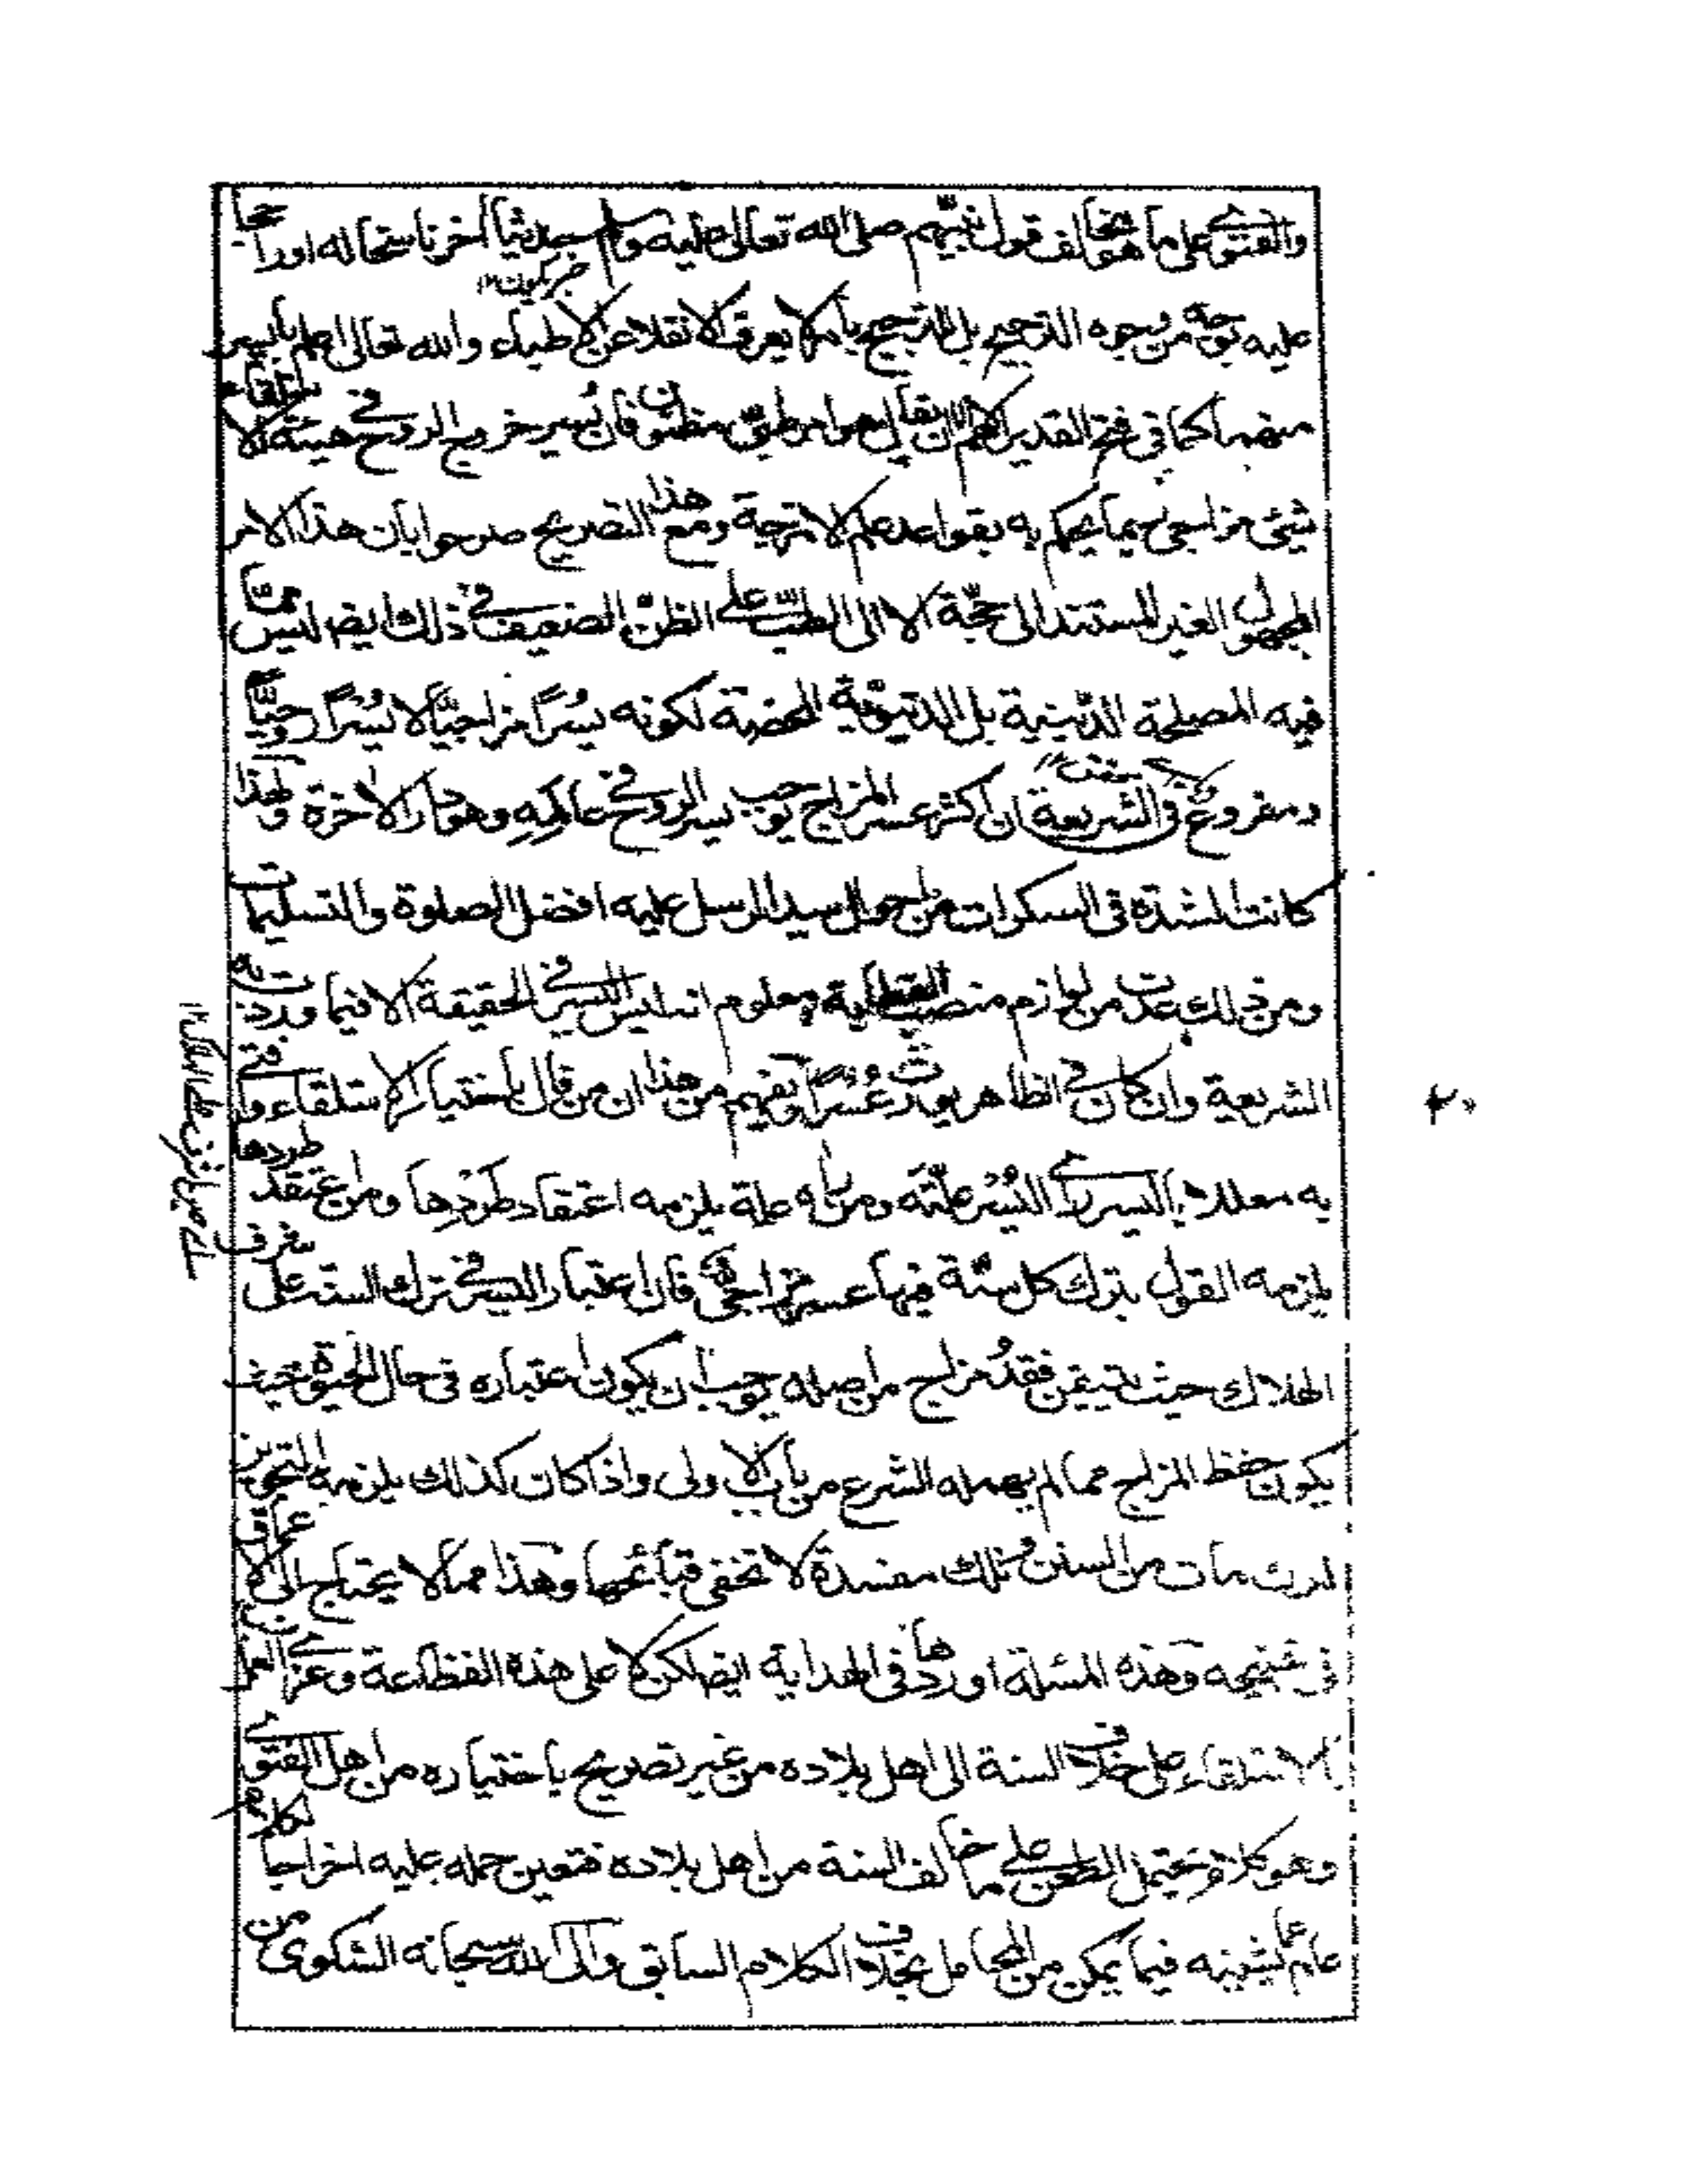 والفتوى على ما هو مخالف قول نبيهم صلى الله تعالى عليه وسلم سيجد شيئا آخر ناسخا له او راجحا
عليه بوجه من وجوه الترجيح بل الترجيح بانه لا يعرف الا نقلا عن الاطباء والله تعالى اعلم بالايسر
منهما كما فى فتح القدير اللهم الا ان يقال هو امر طبى مظنون فان يسير خروج الروح هيئة الاستلقاء
شيئ مزاجى يحكم به بقواعد علم الامزجة ومع هذا التصريح صرحوا بان هذا الامر
المجهول الغير المستند الى حجة الا الى الطب على الظن الضعيف فى ذلك ايضا ليس مما
فيه المصلحة الدينية بل الدنيوية المحضة لكونه يسرا مزاجيا لا يسرا روحيا
ومفروغ فى الشريعة ان اكثر عسر المزاج يوجب يسر الروح فى عالمه وهو دار الآخرة ولهذا
كانت الشدة فى السكرات من احوال سيد الرسل عليه افضل الصلوة والتسليمات
ومن ذلك عدت من لوازم منصب القطبية ومعلوم انه ليس اليسر فى الحقيقة الا فيما وردت به
الشريعة وان كان فى الظاهر يورث عسرا ويفهم من هذا ان من قال باختيار الاستلقاء وافتى
به معللا باليسر راى اليسر علته ومن راه علة يلزمه اعتقاد طردها ومن اعتقد طردها
يلزمه القول بترك كل سنة فيها عسر مزاجى فان اعتبار اليسر فى ترك السنة على شرف
الهلاك حيث يتيقن فقد مزاج من اصله يوجب ان يكون اعتباره فى حال الحيوة بحيث
يكون حفظ المزاج مما لم يهمله الشرع من باب الاولى واذا كان كذلك يلزمه التجويز
لترك مات من السنن وتلك مفسدة لا تخفى قبائحها وهذا مما لا يحتاج الى
فى تنقيحه وهذه المسئلة اوردها فى الهداية ايضا لكن لا على هذه الفظاعة وعزى العمل
بالاستلقاء على خلاف السنة الى اهل بلاده من غير تصريح باختياره من اهل الفتوى
وهو كلام يحتمل الطعن على ما خالف السنة من اهل بلاده فتعين حمله عليه اخراجا لكلام
عالم عما يشينه فيما يمكن من المحامل بخلاف الكلام السابق والى الله سبحانه الشكوى من
٢٠